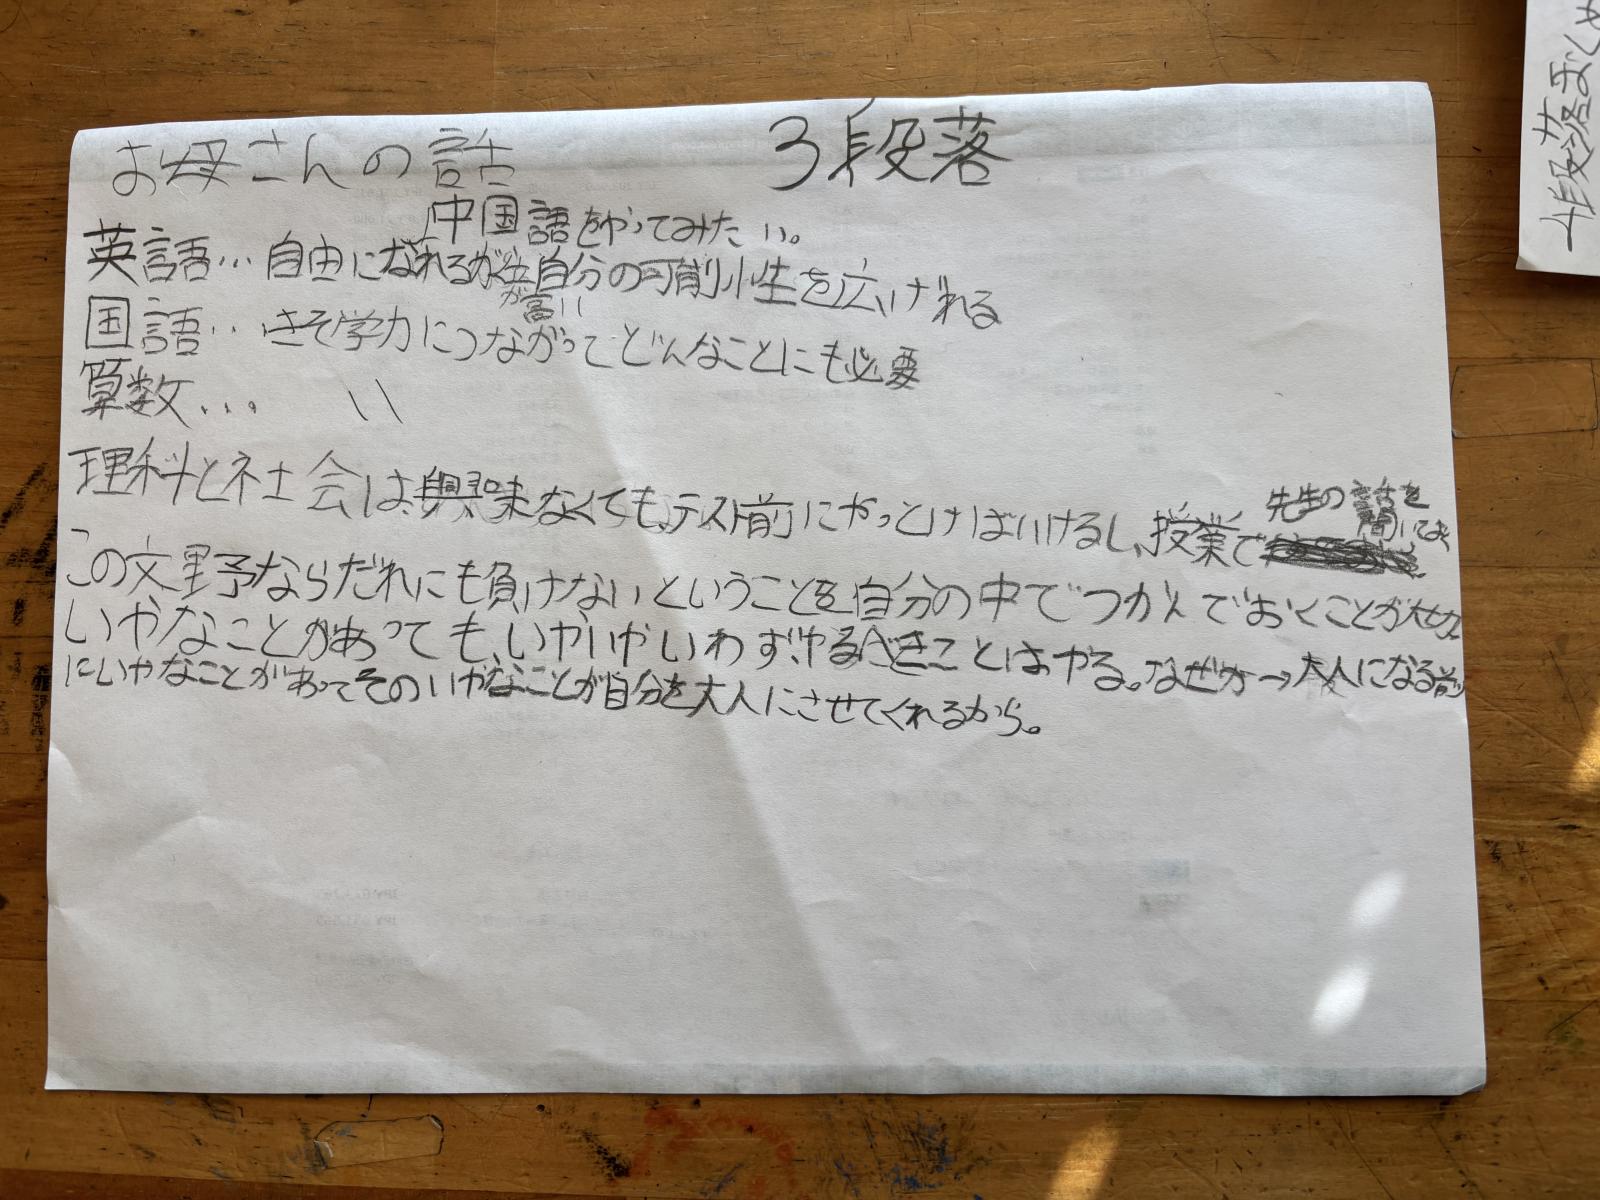 お母さんの話
3段落
中国語をやってみたい。
英語…自由になれるが自分の可能性を広げれる
が高い
国語…きそ学力につながってどんなことにも必要
算数… 〃
理科と社会は、興味なくても、テスト前にやっとけばいけるし、授業で先生の話を聞いておく
この文野予ならだれにも負けないということを自分の中でつかんでおくことが大切
いやなことがあっても、いやいやいわず、やるべきことはやる。なぜか→大人になる前
にいやなことがあってそのいやなことが自分を大人にさせてくれるから。
4段落まとめ